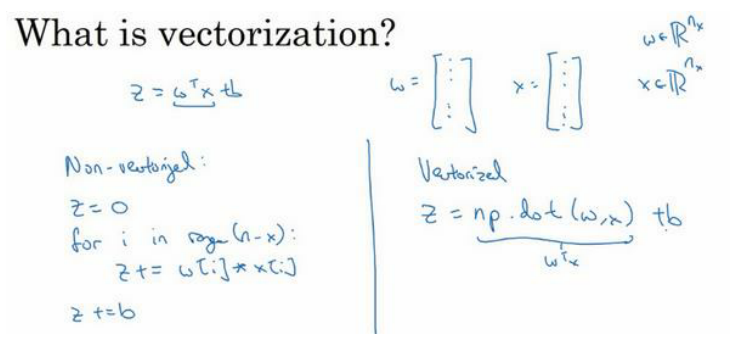 What is vectorization?
z = wᵀx + b
w = [⋮] x = [⋮]
w ∈ ℝⁿˣ
x ∈ ℝⁿˣ
Non-vectorized:
z = 0
for i in range(n-x):
z += w[i] * x[i]
z += b
Vectorized
z = np.dot(w,x) + b
wᵀx